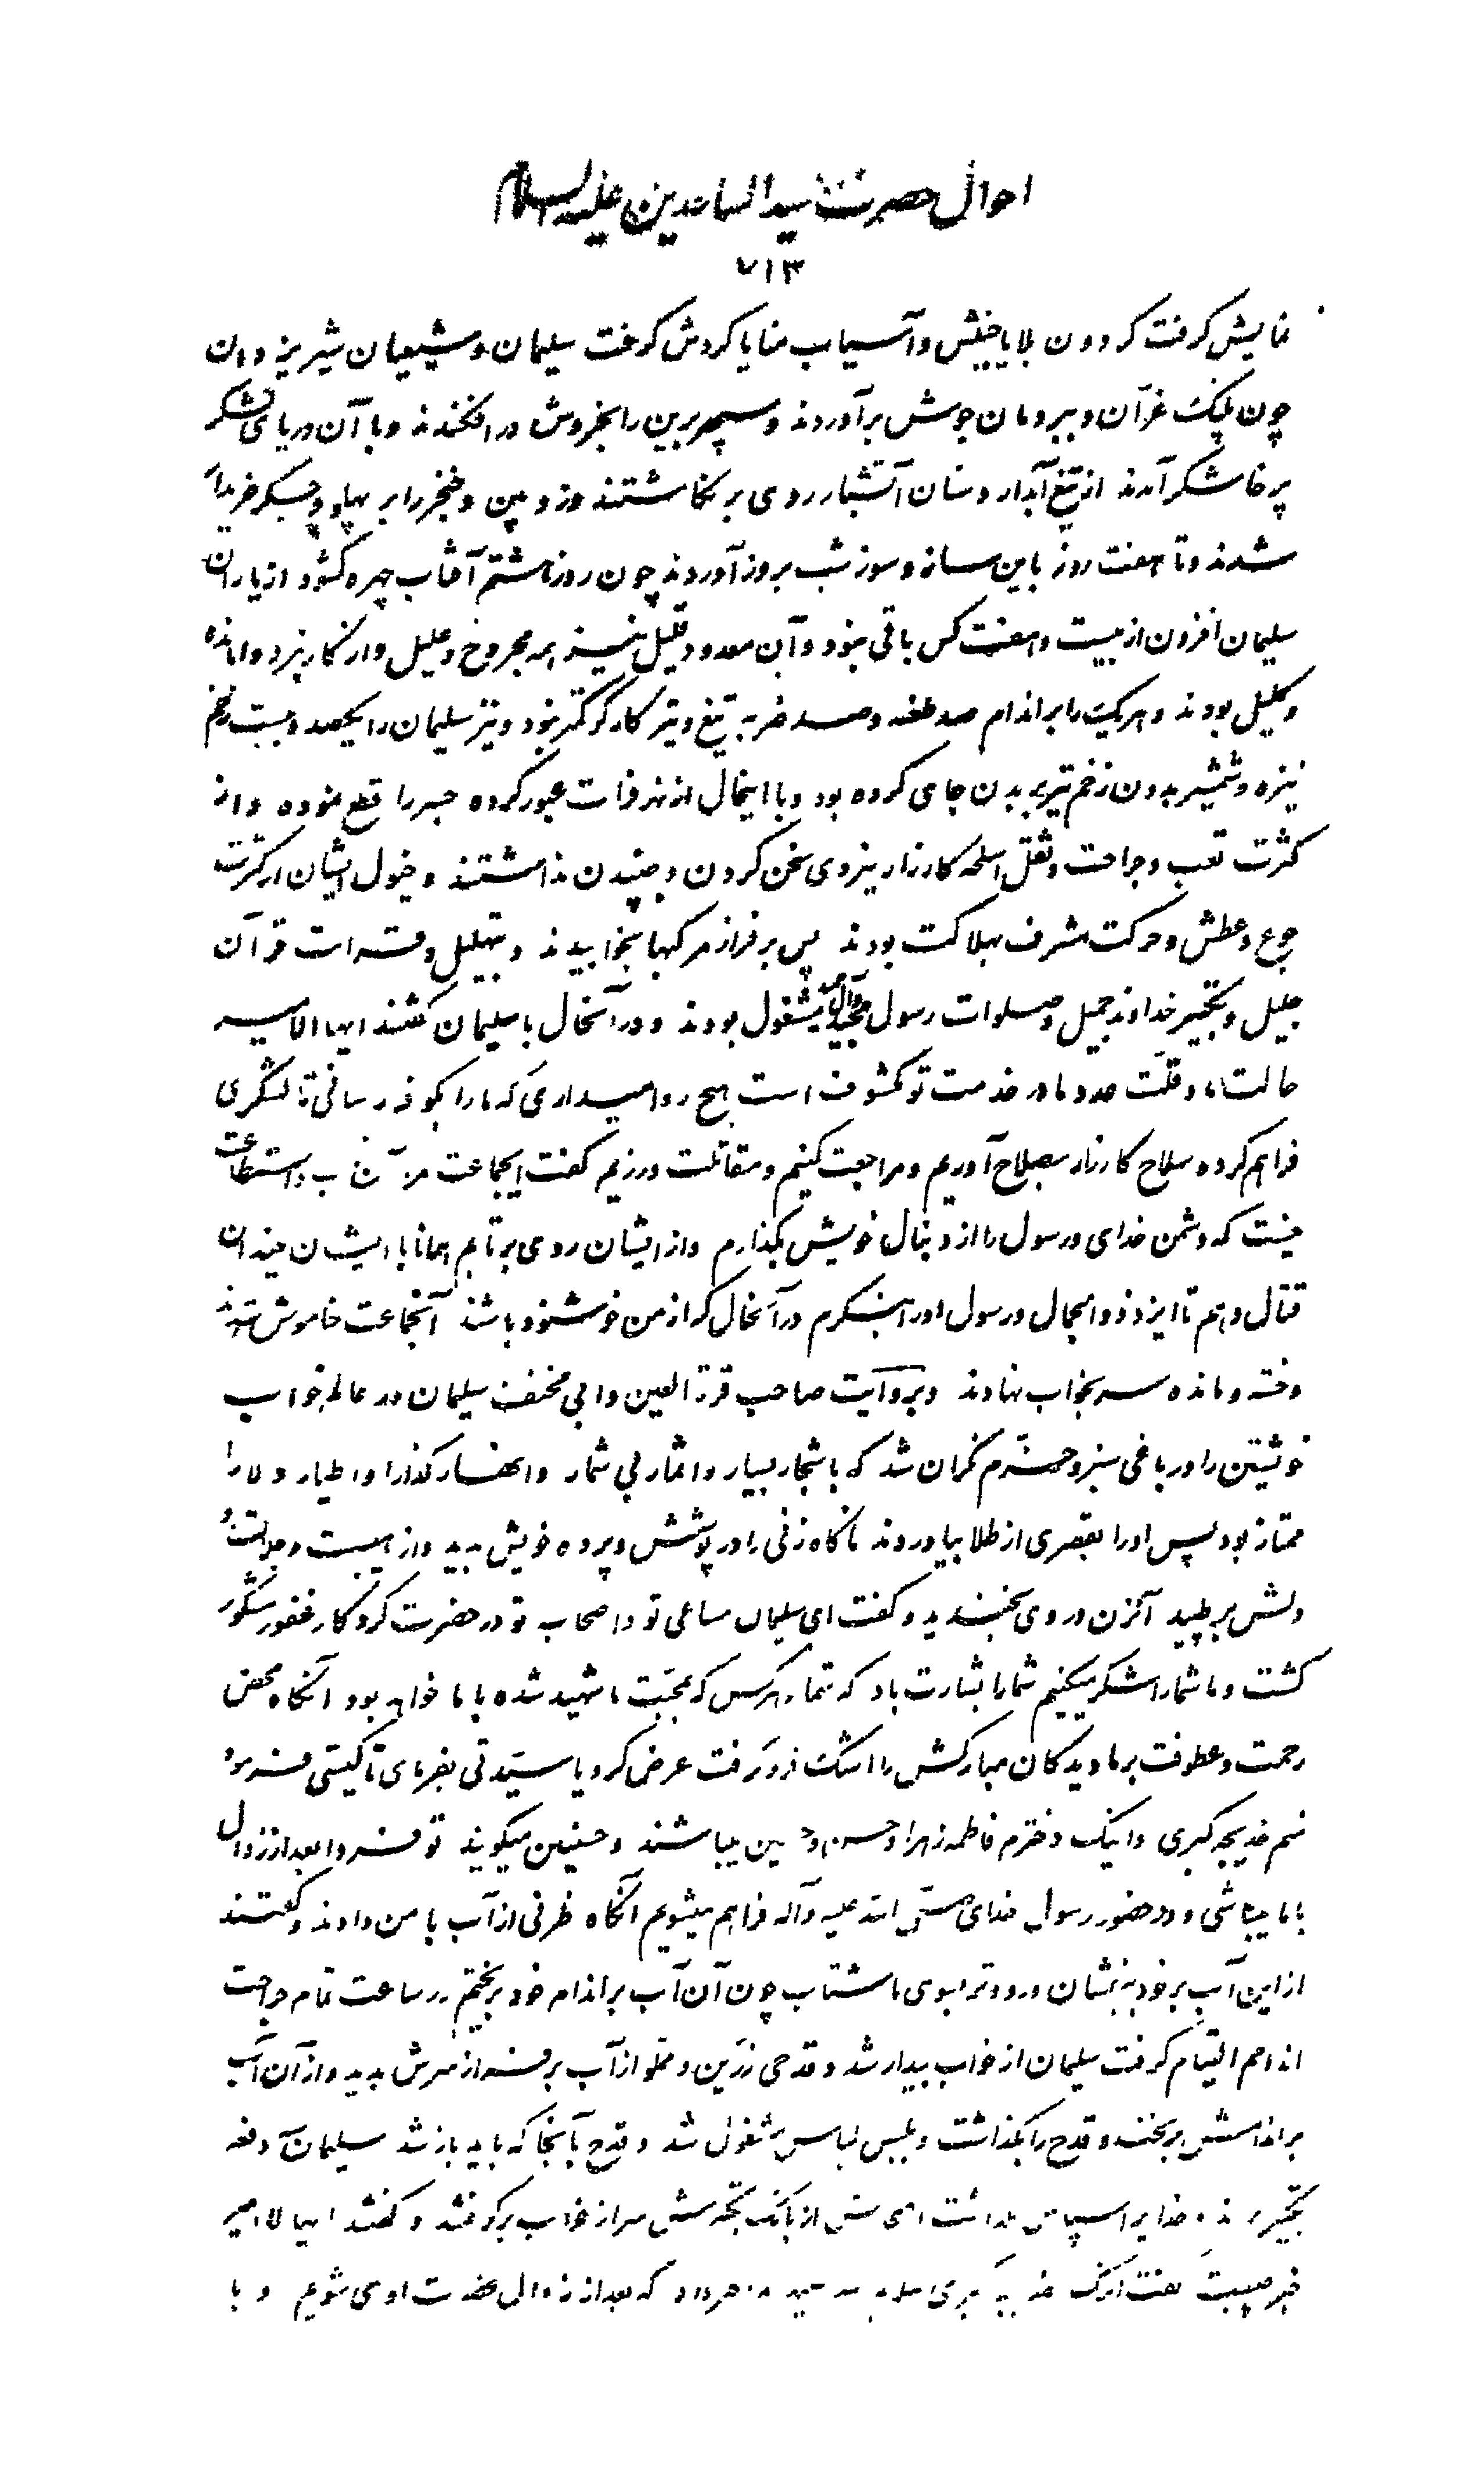 احوال حضرت سید الساجدین علیه السلام
۷۱۳
نمایش گرفت گردون بلایا جنبش و آسیاب منایا گردش گرفت سلیمان و شیعیان شیر یزدان
چون پلنگ غرّان و ببر دمان جوش برآوردند و سپهر برین را بخروش درافکندند و با آن دریای لشکر
پرخاشگر آمدند از تیغ آبدار و سنان آتشبار روی برنگاشتند و زوبین و خنجر را بر پهلو و جگر خریدار
شدند و تا هفت روز باین ساز و سوز شب بروز آوردند چون روز هشتم آفتاب چهره گشود از یاران
سلیمان افزون از بیست و هفت کس باقی نبود و آن معدود قلیل نیز همه مجروح و علیل و از کار نبرد وامانده
و کلیل بودند و هریک را بر اندام صد طعنه و صد ضربه تیغ و تیر کارگر کمتر نبود و نیز سلیمان را یکصد و بیست زخم
نیزه و شمشیر بدون زخم تیر ببدن جای کرده بود و با اینحال از نهر فرات عبور کرده جسر را قطع نموده و از
کثرت تعب و جراحت و ثقل اسلحه کارزار نیروی سخن کردن و جنبیدن نداشتند و خیول ایشان از کثرت
جوع و عطش و حرکت مشرف بهلاکت بودند پس بر فراز مرکبها بخوابیدند و بتهلیل و قراءت قرآن
جلیل و تکبیر خداوند جمیل و صلوات رسول مجید و آل او مشغول بودند و در آنحال با سلیمان گفتند ایها الامیر
حالت ما و قلّت عدد ما در خدمت تو مکشوف است هیچ روا میداری که ما را بکوفه رسانی تا لشگری
فراهم کرده سلاح کارزار بصلاح آوریم و مراجعت کنیم و مقاتلت ورزیم گفت ایجماعت مرا آن تاب و استطاعت
نیست که دشمن خدای و رسول را از دنبال خویش بگذارم و از ایشان روی برتابم همانا با ایشان چندان
قتال دهم تا ایزد ذو الجلال و رسول او را بنگرم در آنحال که از من خوشنود باشند آنجماعت خاموش شدند
و خسته و مانده سر بخواب نهادند و بروایت صاحب قرة العین و ابی مخنف سلیمان در عالم خواب
خویشتن را در باغی سبز و خرّم نگران شد که باشجار بسیار و اثمار بی شمار و انهار گذارا و اطیار دلارا
ممتاز بود پس او را بقصری از طلا بیاوردند ناگاه زنی را در پوشش و پرده خویش بدید و از هیبت و جلالتش
دلش بر طپید آنزن در وی بخندید و گفت ای سلیمان مساعی تو و اصحاب تو در حضرت کردگار غفور مشکور
گشت و ما شما را شکر میکنیم شما را بشارت باد که شما و هر کس که بمحبّت ما شهید شده با ما خواهد بود آنگاه محض
رحمت و عطوفت بر ما دیدگان مبارکش را اشک فرو گرفت عرض کرد یا سیّدتی بفرمای تا کیستی فرمود
منم خدیجه کبری و اینک دخترم فاطمه زهرا و حسن و حسین میباشند و چنین میگویند تو فردا بعد از زوال
با ما میباشی و در حضور رسول خدای صلّی الله علیه و آله فراهم میشویم آنگاه ظرفی از آب با من دادند و گفتند
از این آب بر خود بیفشان و زودتر بسوی ما شتاب چون آن آب بر اندام خود بریختم در ساعت تمام جراحت
اندامم التیام گرفت سلیمان از خواب بیدار شد و قدحی زرّین و مملو از آب بر فراز سرش بدید و از آن آب
بر اندامش بریخت و قدح را بگذاشت و بلبس لباس مشغول شد و قدح بآنجا که باید باز شد سلیمان آن دفعه
تکبیر راند و خدایرا سپاس بداشت اصحابش از بانگ تکبیرش سر از خواب برگرفتند و گفتند ایها الامیر
خبر چیست گفت اینک خدیجه کبری سلام الله علیها مرا خبر داد که بعد از زوال بخدمت او می شویم و با